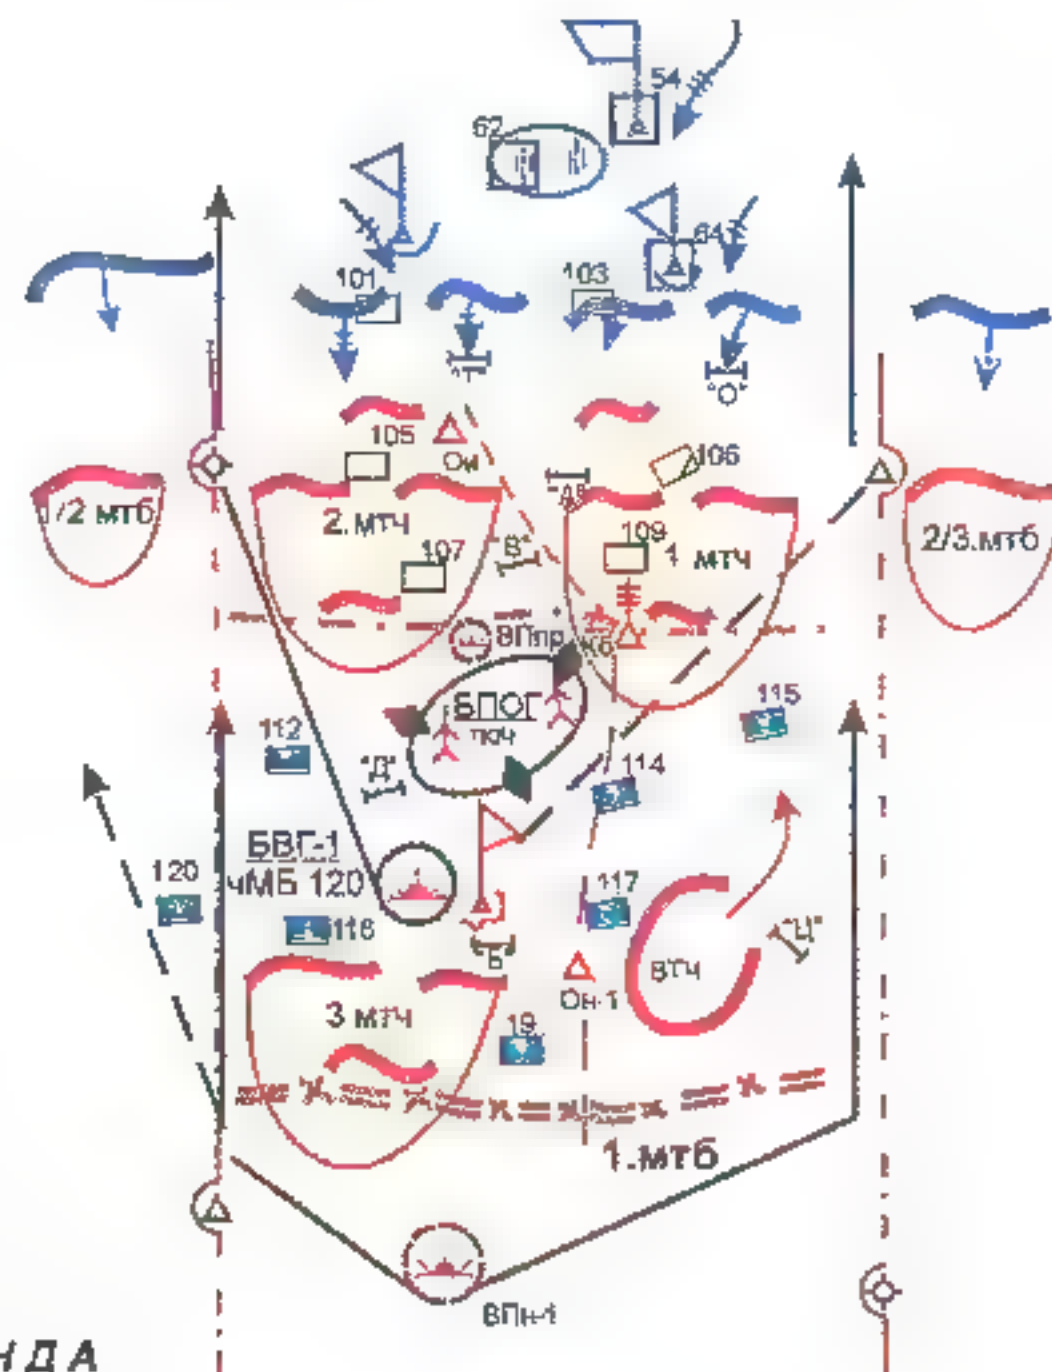 54
62
64
101
103
"О"
105
Ои
106
1/2 мтб
2.мтч
107
"В"
109
1 мтч
2/3.мтб
ВПпр
Кб
БПОГ
ткч
112
"Д"
115
114
БВГ-1
чМБ 120
120
116
117
"Ц"
"Б"
ВТЧ
Он-1
3 мтч
19
1.мтб
ВПн-1
НДА